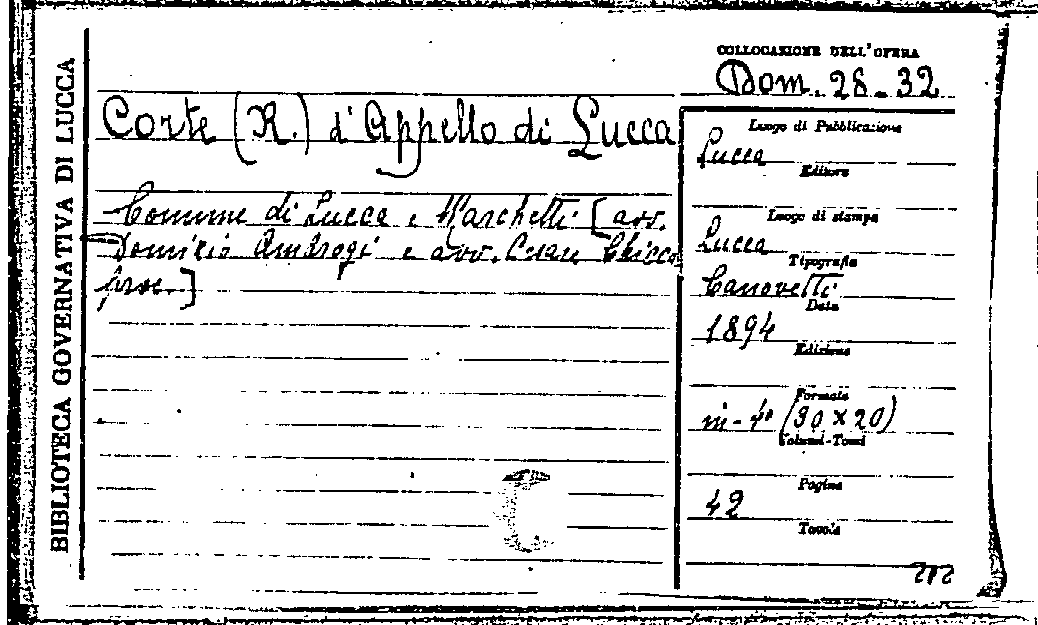 BIBLIOTECA GOVERNATIVA DI LUCCA
COLLOCAZIONE DELL'OPERA
Dom. 28-32
Corte (R.) d'Appello di Lucca
Comune di Lucca e Marchetti [avv.
Domizio Ambrogi e avv. Cesare
proc.]
Luogo di Pubblicazione
Lucca
Editore
Luogo di stampa
Lucca
Tipografia
Canovetti
Data
1894
Edizione
Formato
in-4° (30 x 20)
Volumi-Tomi
Pagine
42
Tavole